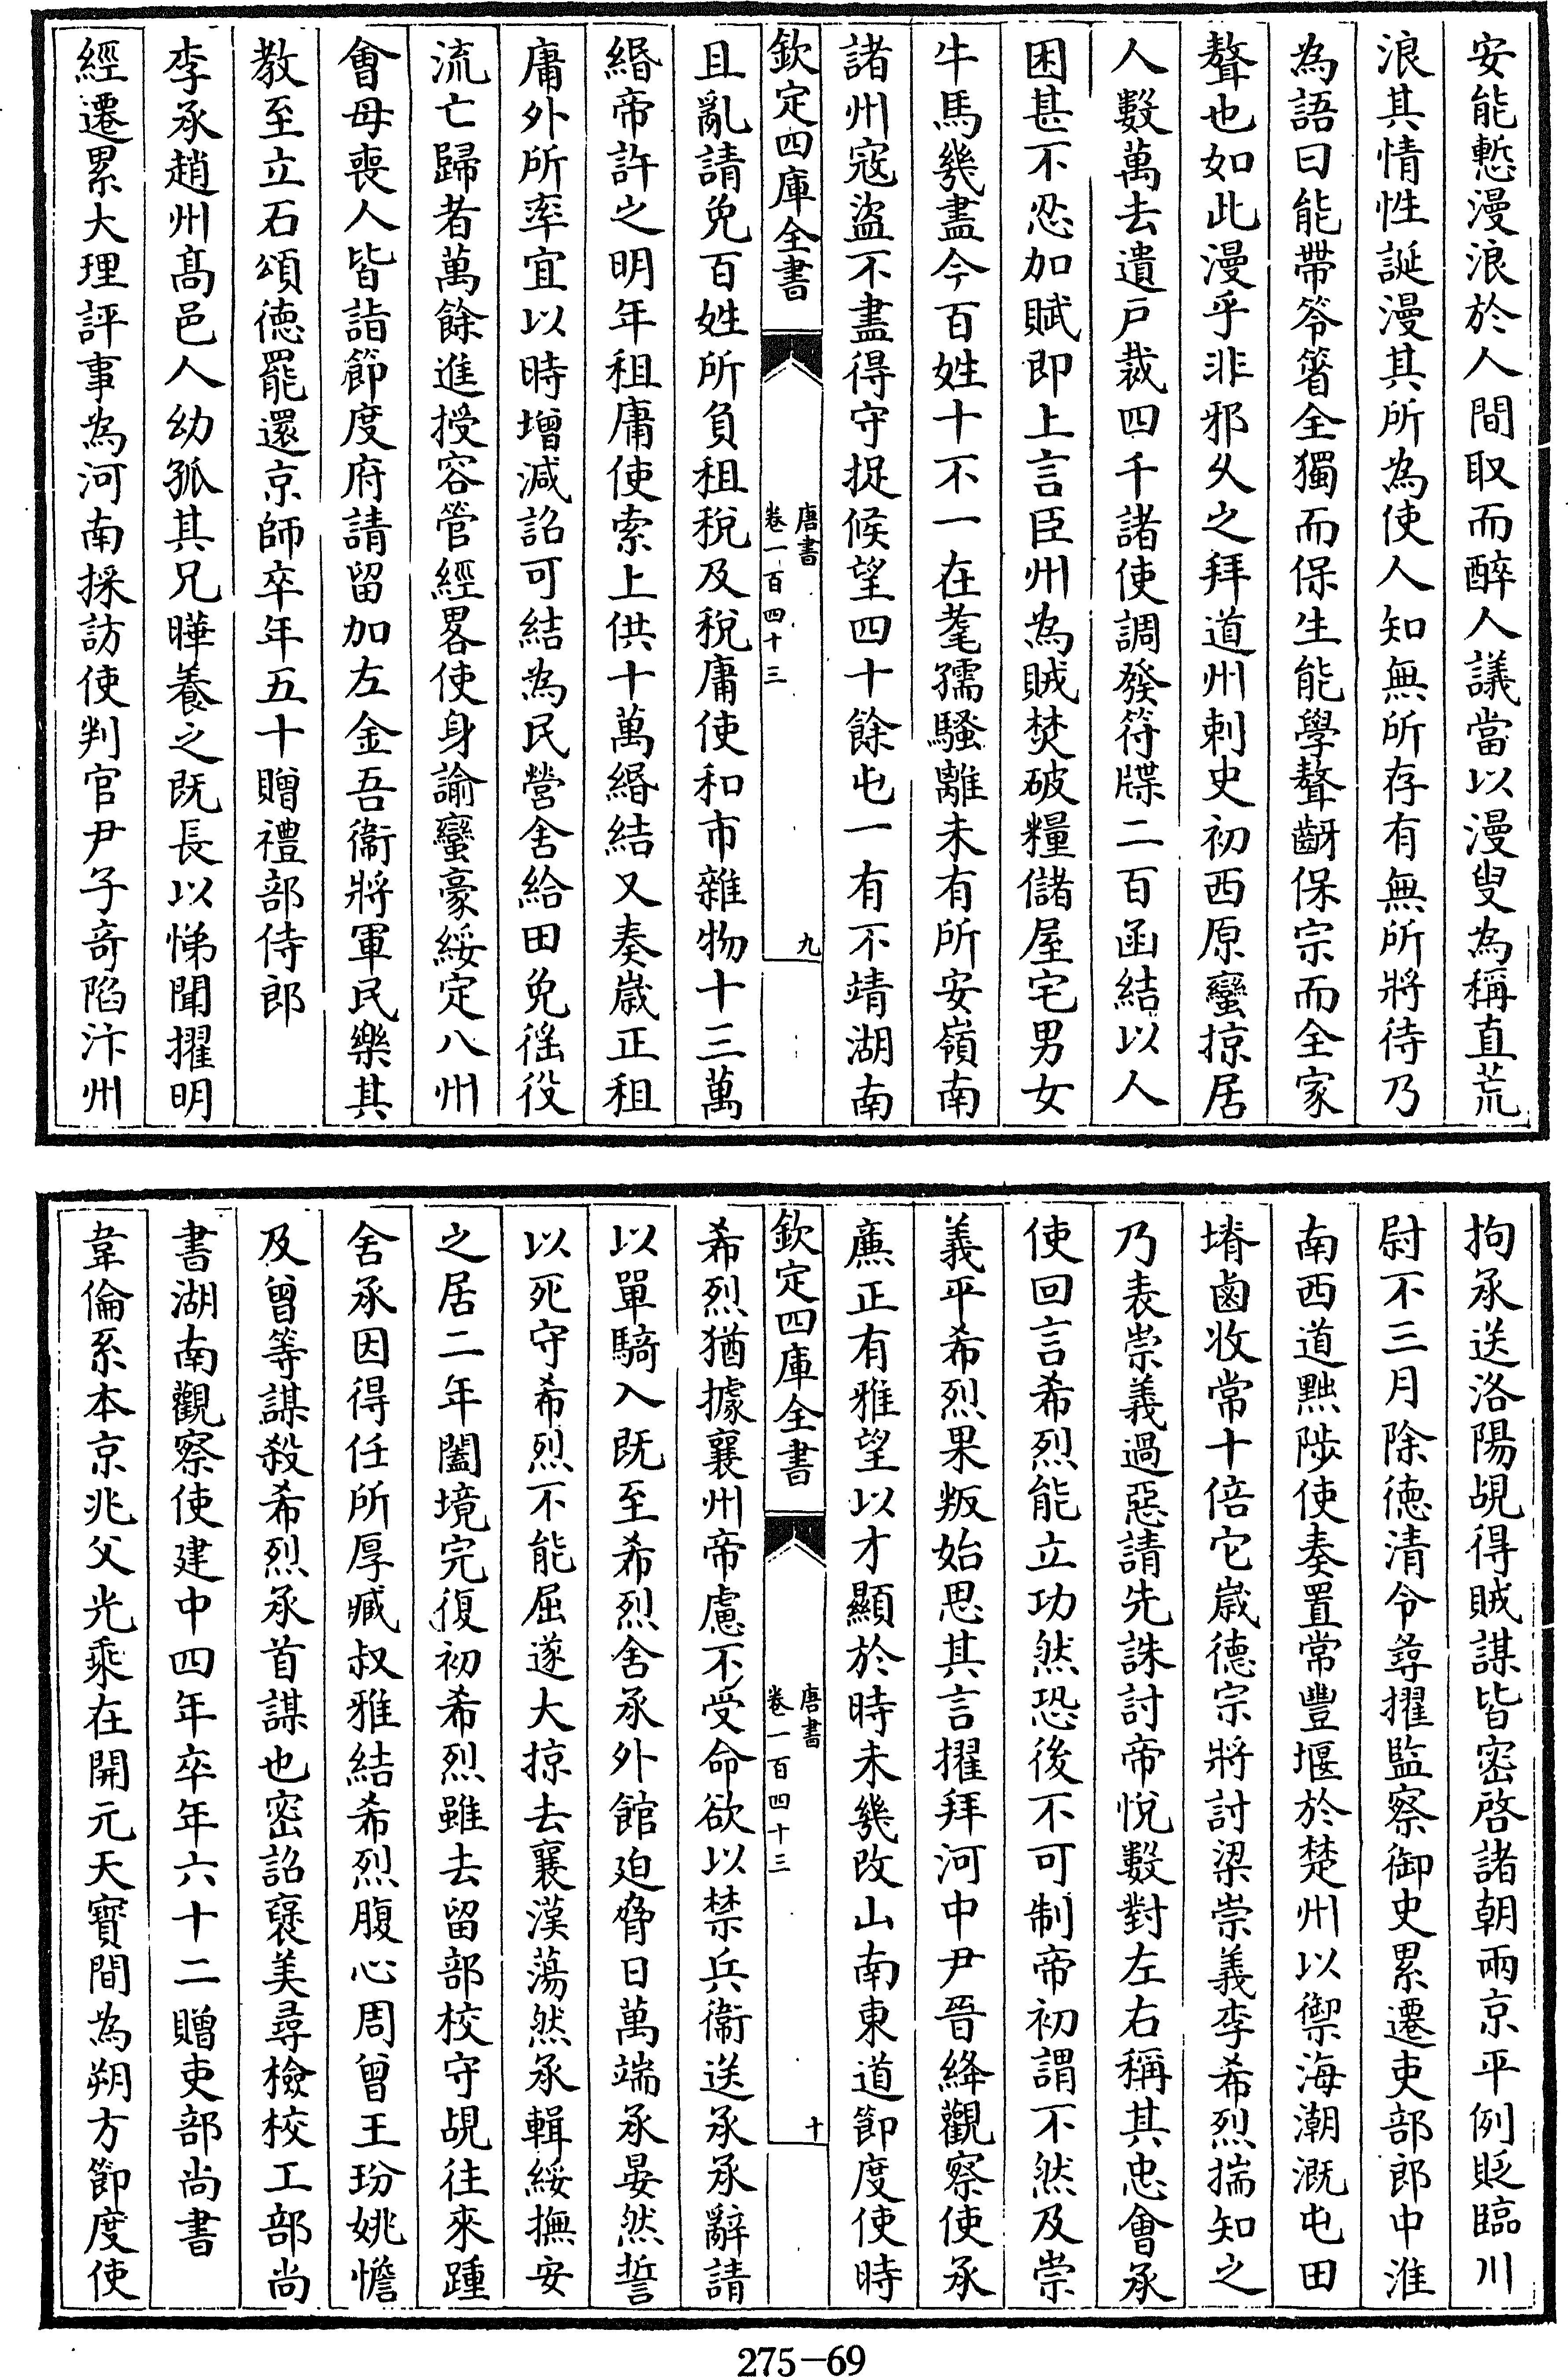 安能慙漫浪於人間取而醉人議當以漫叟為稱直荒
浪其情性誕漫其所為使人知無所存有無所將待乃
為語曰能帶笭箵全獨而保生能學聱齖保宗而全家
聱也如此漫乎非邪乆之拜道州刺史初西原蠻掠居
人數萬去遺戸裁四千諸使調發符牒二百函結以人
困甚不忍加賦即上言臣州為賊焚破糧儲屋宅男女
牛馬幾盡今百姓十不一在耄孺騷離未有所安嶺南
諸州寇盜不盡得守捉候望四十餘屯一有不靖湖南
欽定四庫全書
唐書
卷一百四十三
九
且亂請免百姓所負租稅及稅庸使和市雜物十三萬
緡帝許之明年租庸使索上供十萬緡結又奏嵗正租
庸外所率宜以時增減詔可結為民營舍給田免徭役
流亡歸者萬餘進授容管經畧使身諭蠻豪綏定八州
會母喪人皆詣節度府請留加左金吾衞將軍民樂其
教至立石頌徳罷還京師卒年五十贈禮部侍郎
李承趙州髙邑人幼孤其兄曄養之既長以悌聞擢明
經遷累大理評事為河南採訪使判官尹子奇陷汴州
拘承送洛陽覘得賊謀皆密啓諸朝兩京平例貶臨川
尉不三月除徳清令尋擢監察御史累遷吏部郎中淮
南西道黜陟使奏置常豐堰於楚州以禦海潮溉屯田
塉鹵收常十倍它嵗德宗將討梁崇義李希烈揣知之
乃表崇義過惡請先誅討帝悅數對左右稱其忠會承
使回言希烈能立功然恐後不可制帝初謂不然及崇
義平希烈果叛始思其言擢拜河中尹晉絳觀察使承
廉正有雅望以才顯於時未幾改山南東道節度使時
欽定四庫全書
唐書
卷一百四十三
十
希烈猶據襄州帝慮不受命欲以禁兵衞送承承辭請
以單騎入既至希烈舍承外館迫脅日萬端承晏然誓
以死守希烈不能屈遂大掠去襄漢蕩然承輯綏撫安
之居二年闔境完復初希烈雖去留部校守覘往來踵
舍承因得任所厚臧叔雅結希烈腹心周曾王玢姚憺
及曾等謀殺希烈承首謀也密詔褒美尋檢校工部尚
書湖南觀察使建中四年卒年六十二贈吏部尚書
韋倫系本京兆父光乘在開元天寶間為朔方節度使
275-69